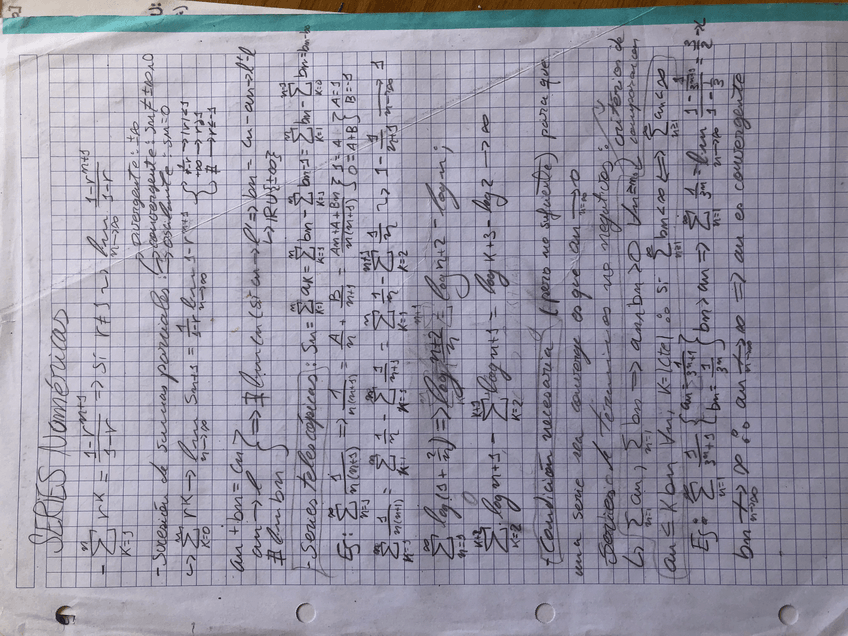 SERIES Numéricas
- ∑_{k=1}^{n} r^k = (1-r^{n+1})/(1-r) => si r≠1 ~> lim_{n→∞} (1-r^{n+1})/(1-r)
- Sucesión de sumas parciales:
→ divergente: ±∞
→ convergente: Sn ≠ ±∞
→ oscilante: Sn=0
↳ ∑_{k=0}^{n} r^k → lim_{n→∞} S_{n+1} = 1/(1-r) lim_{n→∞} 1-r^{n+1} { 1/(1-r) → |r|<1
∞ → r≥1
∄ → r≤-1
an + bn = cn ?
an → l
∄ lim bn } => ∄ lim cn (si cn → l' => bn = cn - an → l'-l
↳ ℝ∪{±∞}
- Series telescópicas: Sn = ∑_{k=1}^{n} ak = ∑_{k=1}^{n} bn - ∑_{k=1}^{n} bn-1 = ∑_{k=1}^{n} bn - ∑_{k=0}^{n-1} bn = bn-b0
Ej: ∑_{n=1}^{∞} 1/(n(n+1)) => 1/(n(n+1)) = A/n + B/(n+1) = (An+A+Bn)/(n(n+1)) } 1=A
0=A+B } A=1
B=-1
∑_{n=1}^{∞} 1/(n(n+1)) = ∑_{k=1}^{n} 1/n - ∑_{k=1}^{n} 1/(n+1) = ∑_{k=1}^{n} 1/n - ∑_{k=2}^{n+1} 1/n ~> 1 - 1/(n+1) →_{n→∞} 1
∑_{n=1}^{∞} log(1+2/n) => log (n+2)/n = log n+2 - log n;
∑_{k=2}^{k+2} log n+1 - ∑_{k=2}^{k+1} log n+1 = log k+3 - log 2 → ∞
+ Condición necesaria (pero no suficiente) para que
una serie sea converge es que an →_{n→∞} 0
Series de términos no negativos:
↳ ∑ an, ∑_{n=1}^{∞} bn => an ∧ bn > 0 criterion de
comparacion
an ≤ K bn ∀n, K=|cte| ∴ Si ∑_{n=1}^{∞} bn < ∞ <=> ∑_{n=1}^{∞} an < ∞
Ej: ∑_{n=1}^{∞} 1/(3^n+1) { an = 1/(3^n+1)
bn = 1/3^n } bn > an => ∑_{n=1}^{∞} 1/3^n = lim_{n→∞}
bn ↛_{n→∞} ∞ ∴ an ↛_{n→∞} ∞ => an es convergente